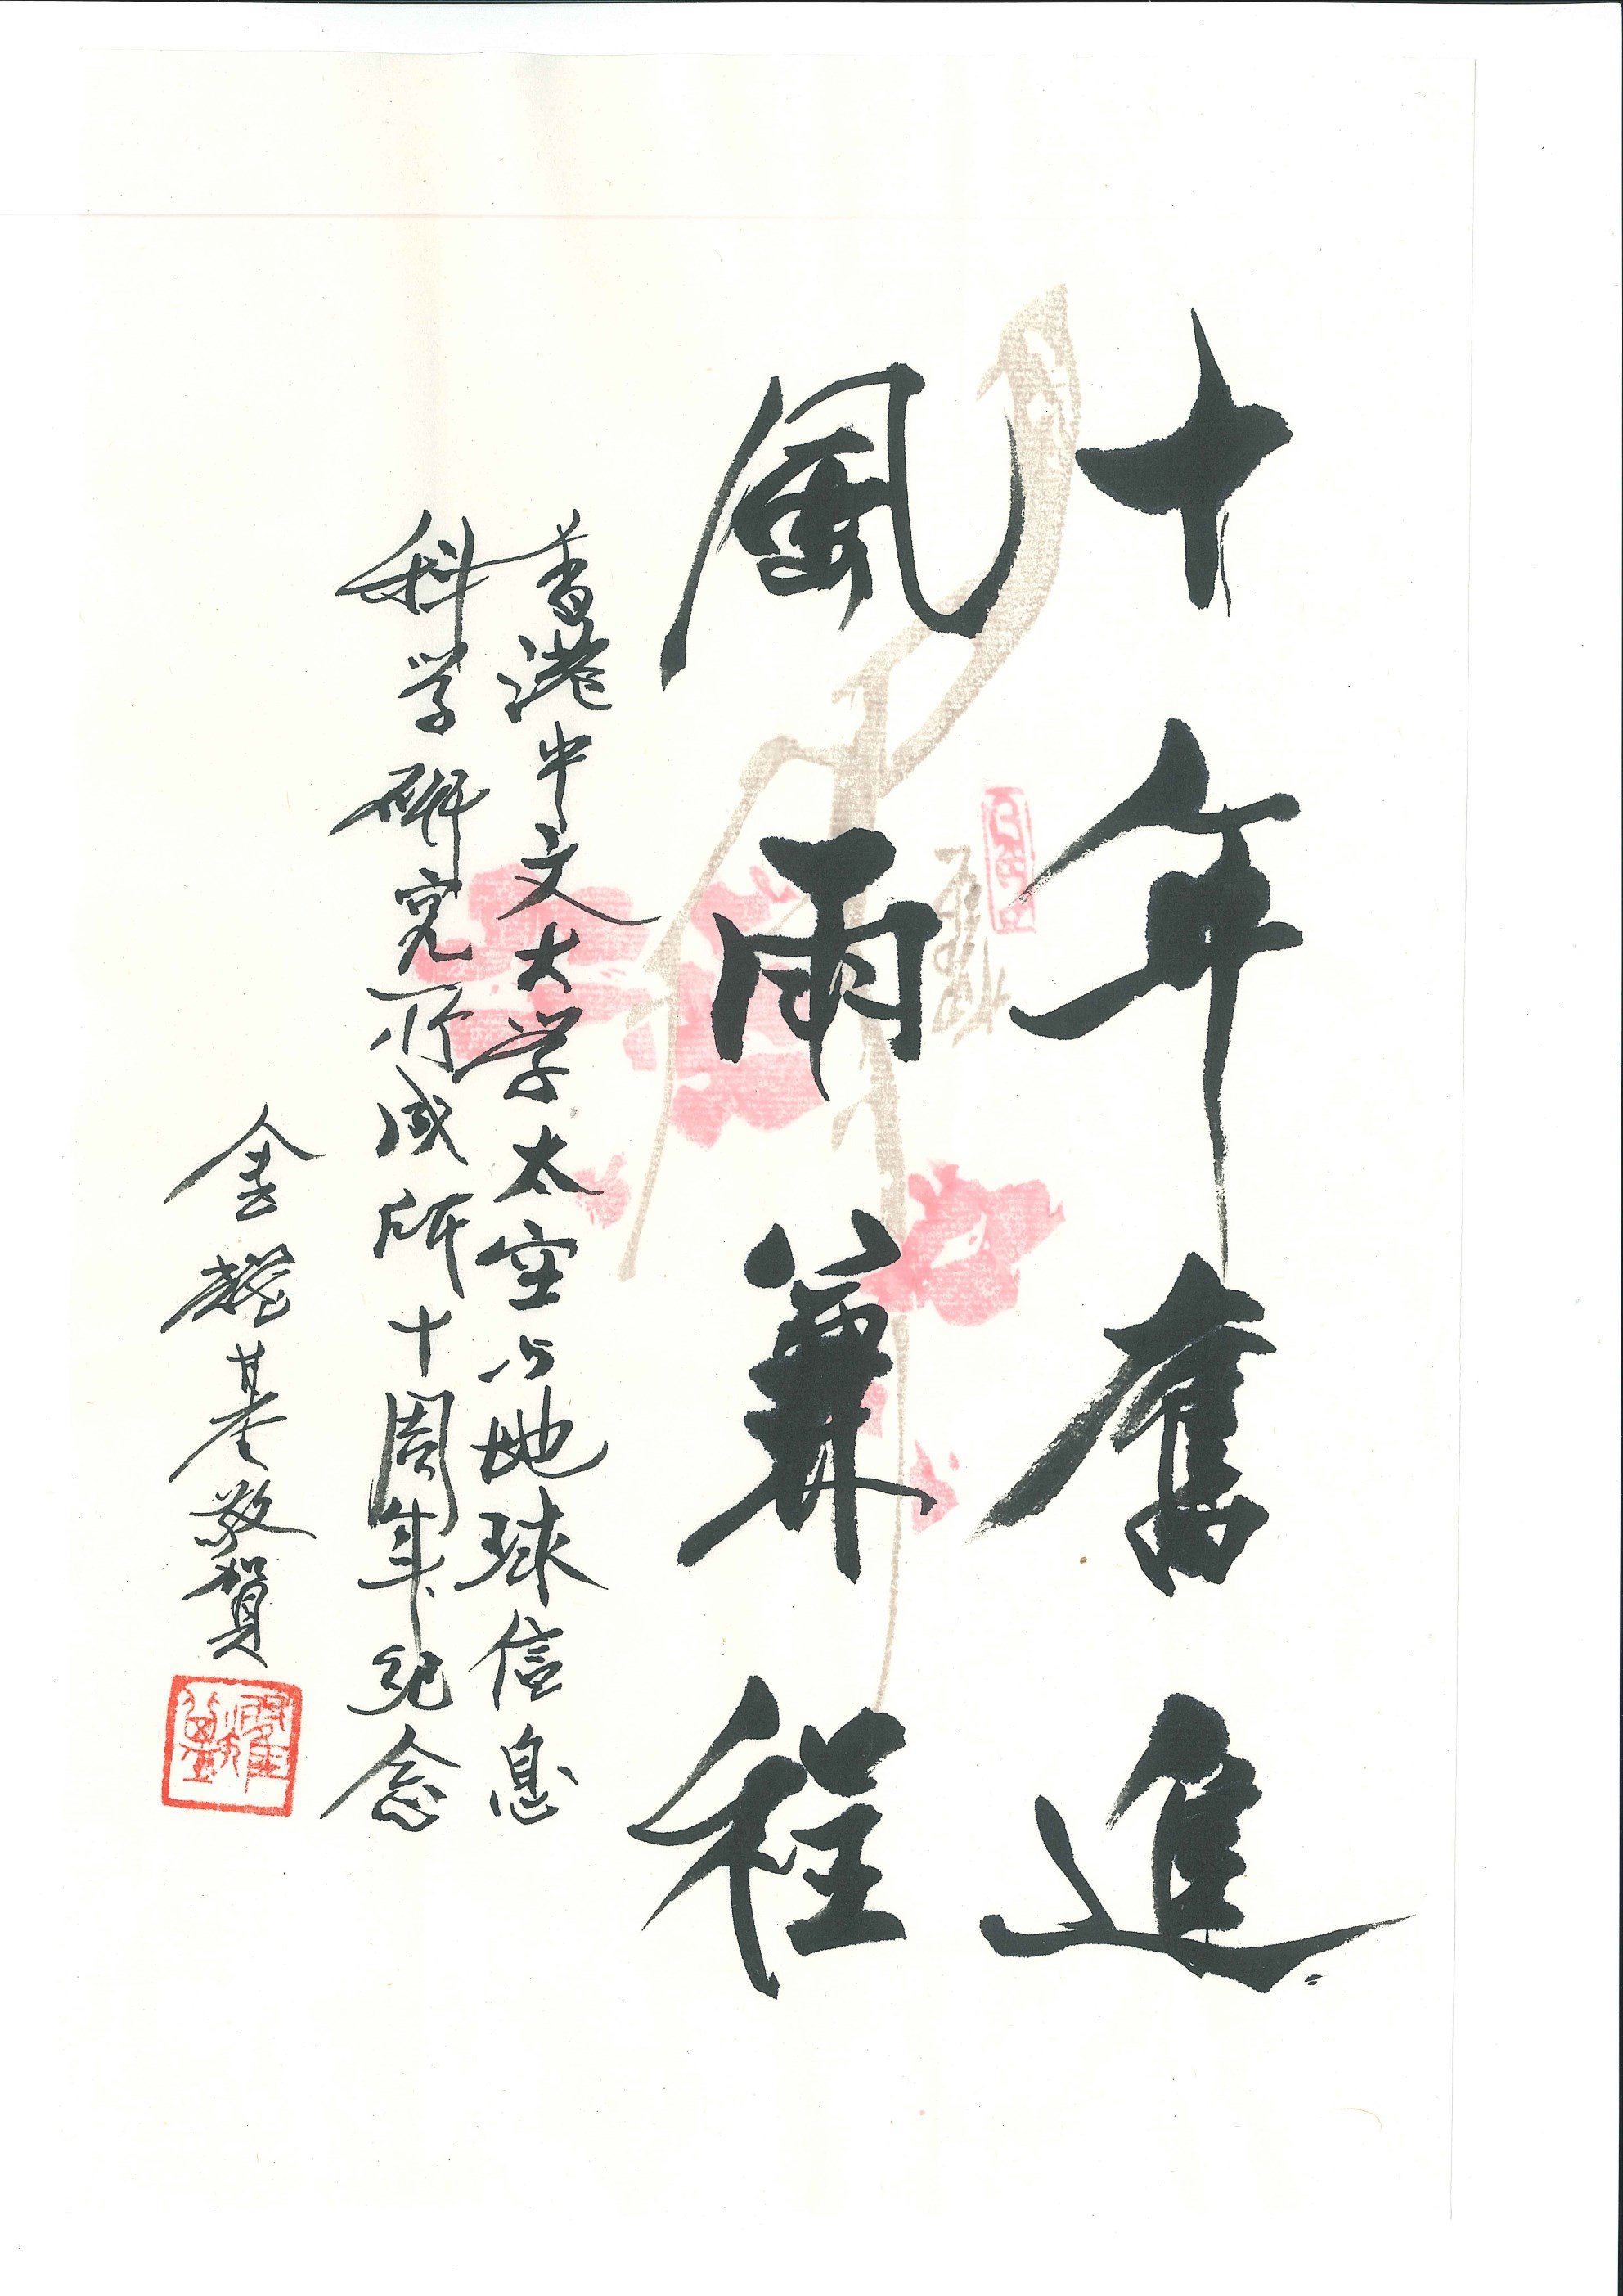 十年奮進
風雨兼程
香港中文大学太空与地球信息
科学研究所成所十周年纪念
金耀基敬賀